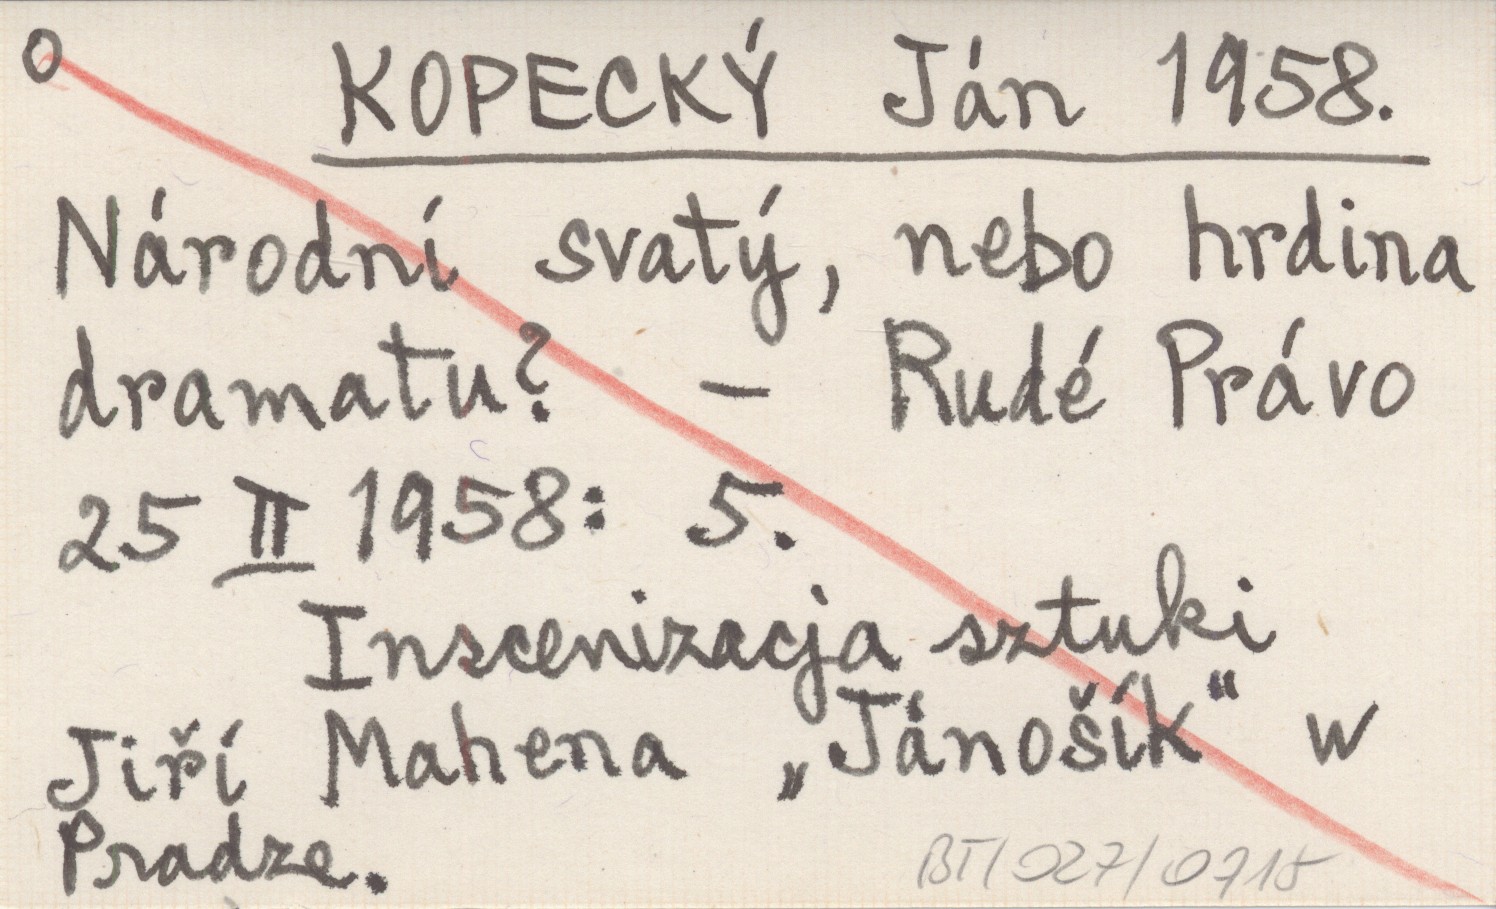 O KOPECKÝ Ján 1958.
Národní svatý, nebo hrdina
dramatu? – Rudé Právo
25 II 1958: 5.
Inscenizacja sztuki
Jiří Mahena „Jánošík“ w
Pradze.
BT/027/0715